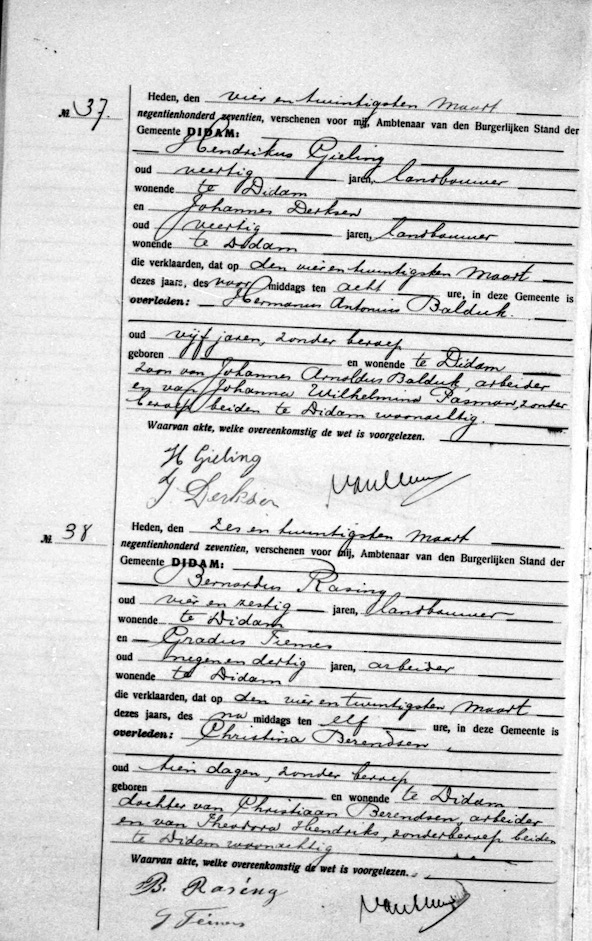 № 37. Heden, den vier en twintigsten maart
negentienhonderd zeventien, verschenen voor mij, Ambtenaar van den Burgerlijken Stand der
Gemeente DIDAM:
Hendrikus Gieling
oud veertig jaren, landbouwer
wonende te Didam
en Johannes Derksen
oud veertig jaren, landbouwer
wonende te Didam
die verklaarden, dat op den vier en twintigsten Maart
dezes jaars, des voormiddags ten acht ure, in deze Gemeente is
overleden: Hermanus Antonius Balduk.
oud vijf jaren, zonder beroep
geboren en wonende te Didam
zoon van Johannes Arnoldus Balduk, arbeider
en van Johanna Wilhelmina Pasman, zonder
beroep beiden te Didam woonachtig.
Waarvan akte, welke overeenkomstig de wet is voorgelezen.
H Gieling
J Derksen
№ 38 Heden, den zes en twintigsten maart
negentienhonderd zeventien, verschenen voor mij, Ambtenaar van den Burgerlijken Stand der
Gemeente DIDAM:
Bernardus Rasing
oud vier en zestig jaren, landbouwer
wonende te Didam
en Gradus
oud negen en dertig jaren, arbeider
wonende te Didam
die verklaarden, dat op den vier en twintigsten Maart
dezes jaars, des na middags ten elf ure, in deze Gemeente is
overleden: Christina Berendsen
oud tien dagen, zonder beroep
geboren en wonende te Didam
dochter van Christiaan Berendsen, arbeider
en van Theodora Hendriks, zonder beroep beiden
te Didam woonachtig
Waarvan akte, welke overeenkomstig de wet is voorgelezen.
B. Rasing
G